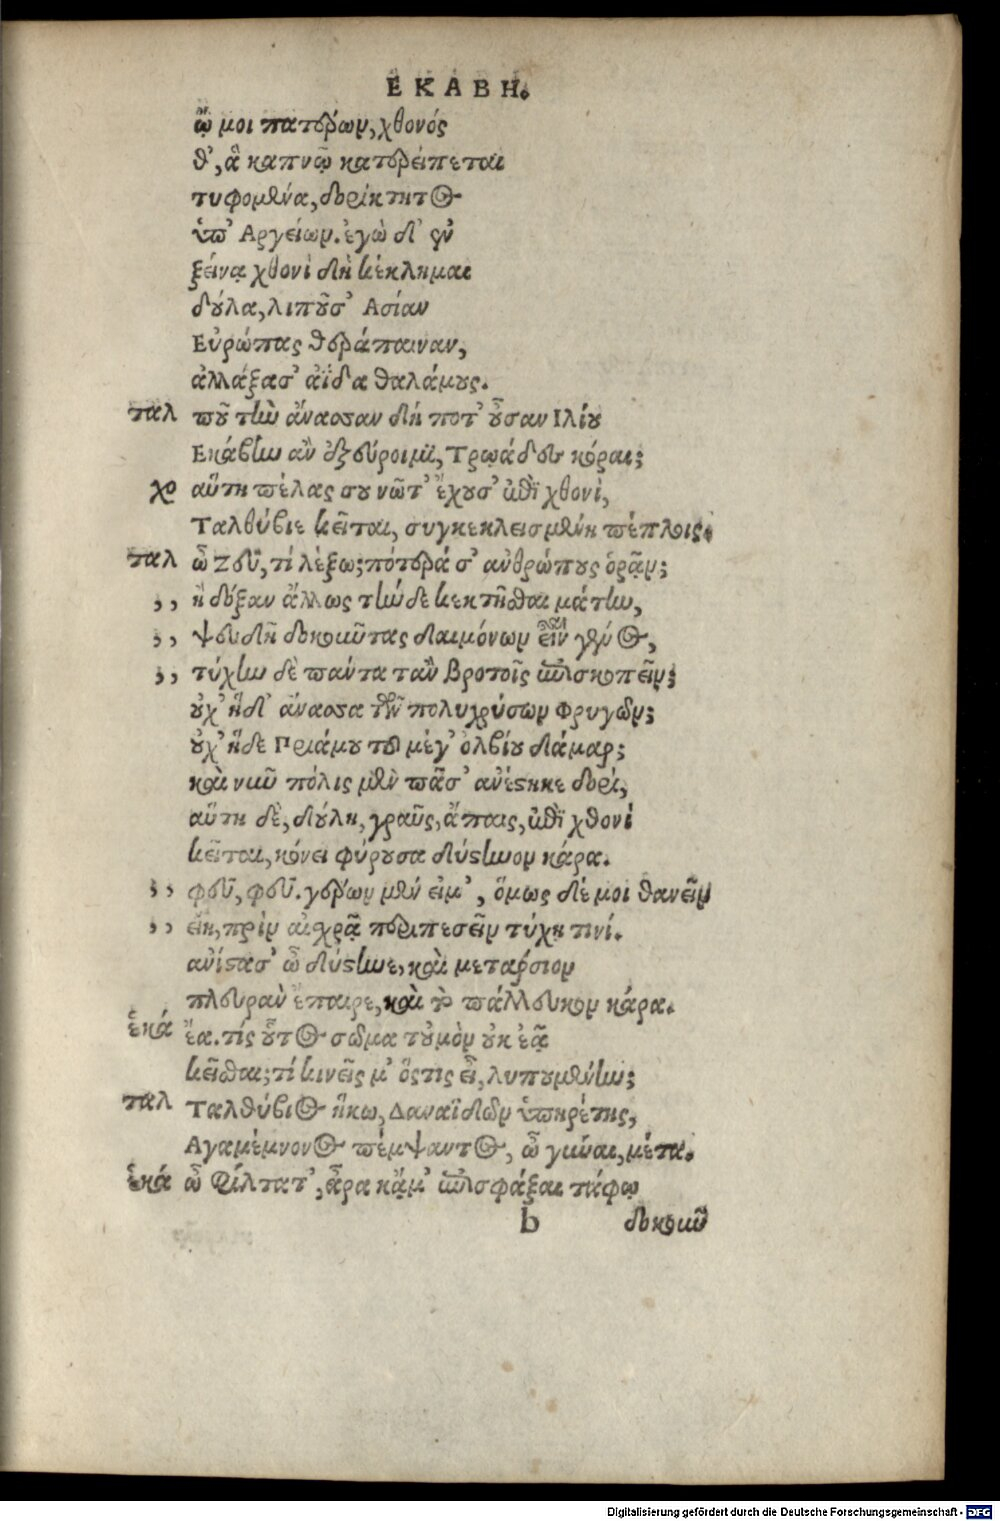 ΕΚΑΒΗ.
ᾤ μοι πατέρων, χθονός
θ', ἃ καπνῷ κατερείπεται
τυφομένα, δορίκτητος
ὑπ' Αργείων. ἐγὼ δ' ἐν
ξείνᾳ χθονὶ δὴ κέκλημαι
δούλα, λιποῦσ' Ασίαν
Εὐρώπας θεράπαιναν,
ἀλλάξασ' ἀΐδα θαλάμους.
ταλ ποῦ τὴν ἄνασσαν δή ποτ' οὖσαν Ιλίου
Εκάβην ἂν ἐξεύροιμι, Τρῳάδες κόραι;
χο αὕτη πέλας σου νῶτ' ἔχουσ' ἐπὶ χθονὶ,
Ταλθύβιε κεῖται, συγκεκλεισμένη πέπλοις.
ταλ ὦ Ζεῦ, τί λέξω; πότερά σ' ἀνθρώπους ὁρᾷν;
,, ἢ δόξαν ἄλλως τήνδε κεκτῆσθαι μάτην,
,, ψευδῆ δοκοῦντας δαιμόνων εἶναι γένος,
,, τύχην δὲ πάντα τἂν βροτοῖς ἐπισκοπεῖν;
οὐχ' ἥδ' ἄνασσα τῶν πολυχρύσων Φρυγῶν;
οὐχ' ἥδε Πριάμου τοῦ μέγ' ὀλβίου δάμαρ;
καὶ νῦν πόλις μὲν πᾶσ' ἀνέστηκε δορὶ,
αὕτη δὲ, δούλη, γραῦς, ἄπαις, ἐπὶ χθονὶ
κεῖται, κόνει φύρουσα δύστηνον κάρα.
,, φεῦ, φεῦ. γέρων μέν εἰμ', ὅμως δέ μοι θανεῖν
,, εἴη, πρὶν αἰσχρᾷ περιπεσεῖν τύχῃ τινί.
ἀνίστασ' ὦ δύστηνε, καὶ μετάρσιον
πλευρὰν ἔπαιρε, καὶ τὸ πάλλευκον κάρα.
ἑκά ἔα. τίς οὗτος σῶμα τοὐμὸν οὐκ ἐᾷ
κεῖσθαι; τί κινεῖς μ' ὅστις εἶ, λυπουμένην;
ταλ Ταλθύβιος ἥκω, Δαναϊδῶν ὑπηρέτης,
Αγαμέμνονος πέμψαντος, ὦ γύναι, μέτα.
ἑκά ὦ φίλτατ', ἆρα κἄμ' ἐπισφάξαι τάφῳ
b δοκοῦν